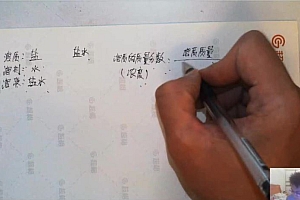 溶质：盐 盐水 溶质的质量分数：溶质质量
溶剂：水 （浓度）
溶液：盐水